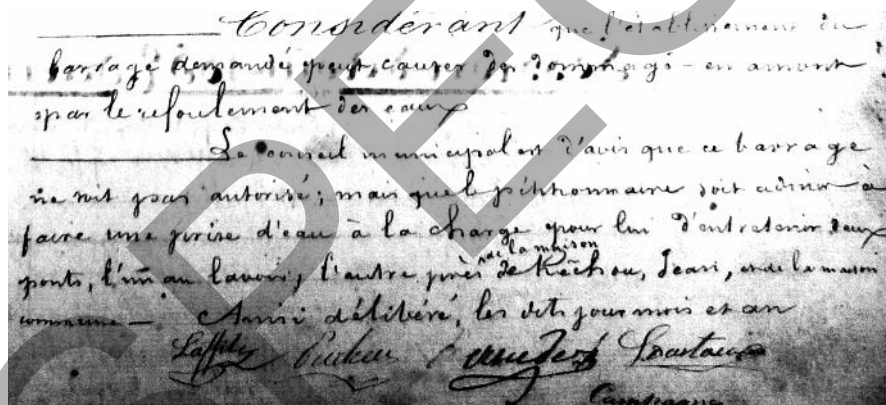 Considérant que l'établissement du
barrage demandé peut causer des dommages en amont
par le refoulement des eaux
Le conseil municipal est d'avis que ce barrage
ne soit pas autorisé; mais que le pétitionnaire soit admis à
faire une prise d'eau à la charge pour lui d'entretenir deux
de la maison
ponts, l'un au lavoir, l'autre près de Réchou, Jean, et de la maison
commune — Ainsi délibéré, les dits jour mois et an